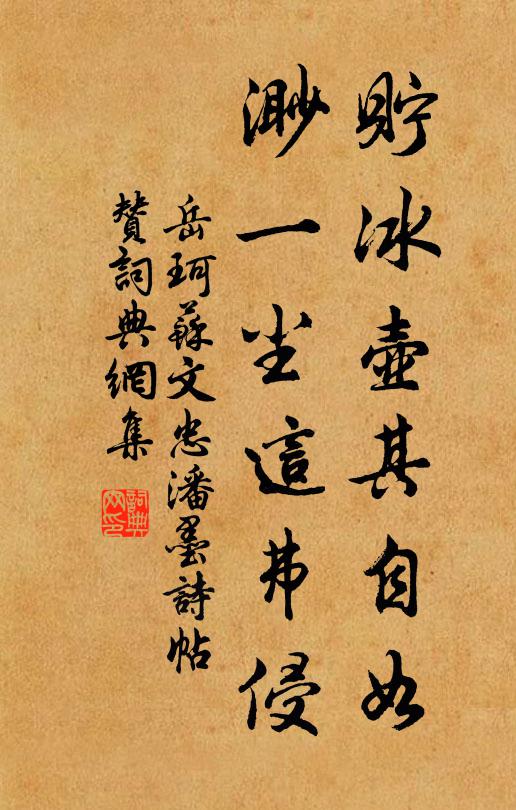 貯冰壺其自如
渺一尘這弗侵
岳珂蘇文忠潘墨詩帖
贊詞典網集
詞典网印